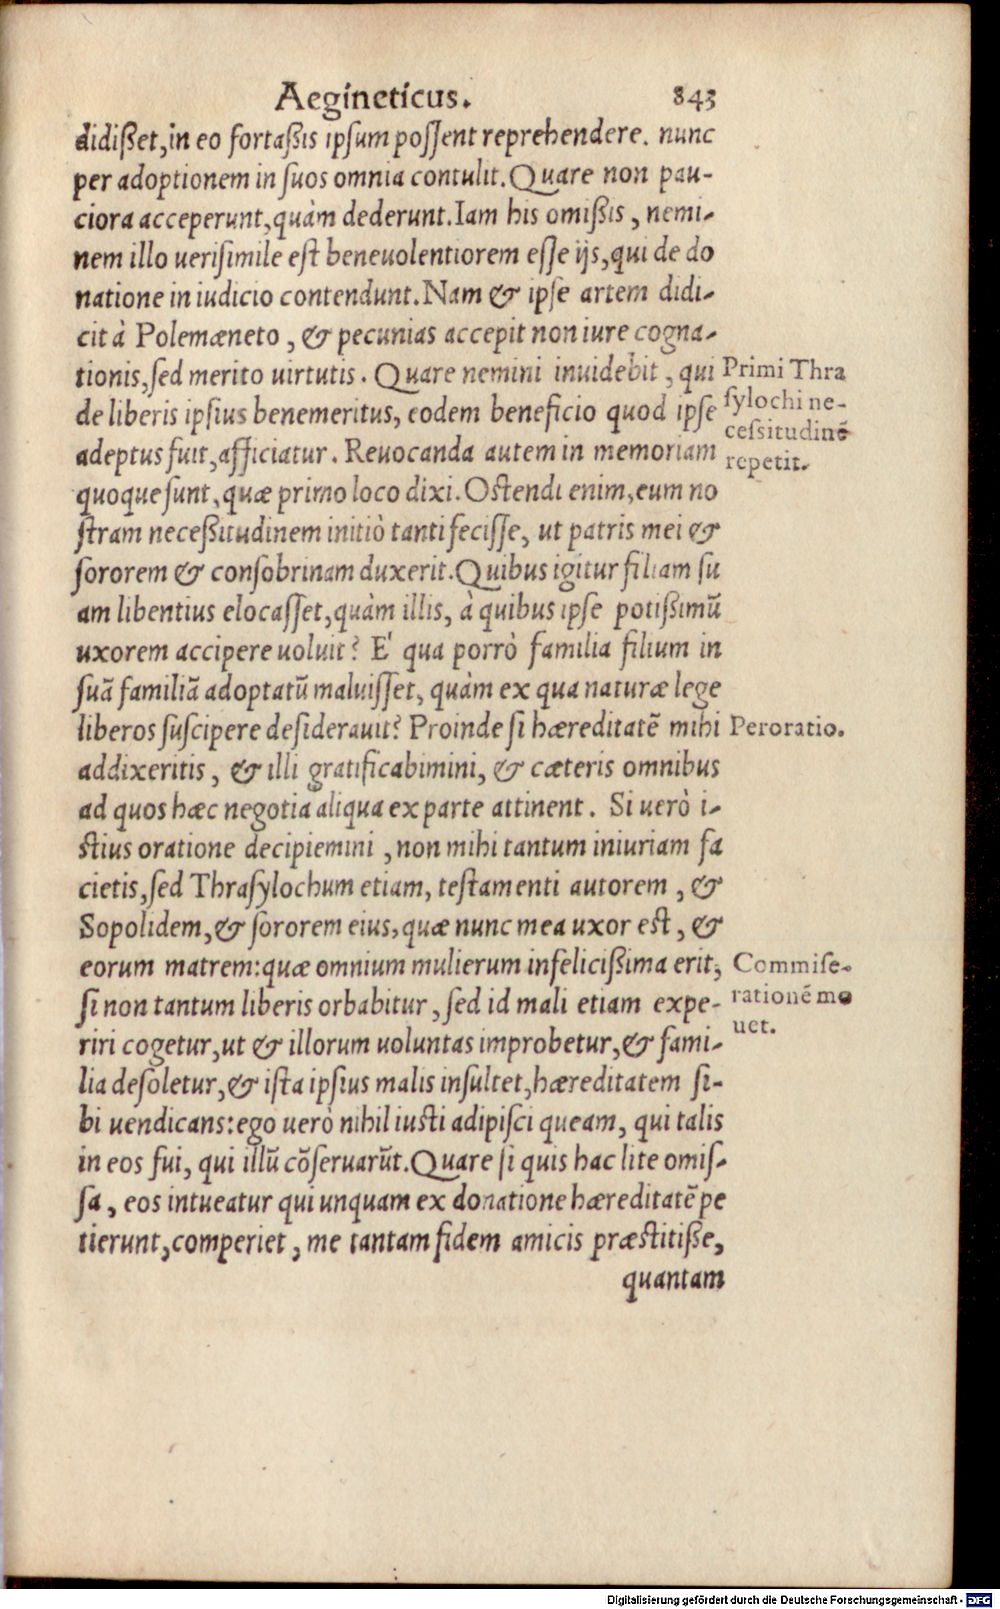 Aegineticus. 843
didißet, in eo fortaßis ipsum possent reprehendere. nunc
per adoptionem in suos omnia contulit. Quare non pau-
ciora acceperunt, quàm dederunt. Iam his omißis, nemi-
nem illo uerisimile est beneuolentiorem esse ijs, qui de do
natione in iudicio contendunt. Nam & ipse artem didi-
cit à Polemæneto, & pecunias accepit non iure cogna-
tionis, sed merito uirtutis. Quare nemini inuidebit, qui
de liberis ipsius benemeritus, eodem beneficio quod ipse
adeptus fuit, afficiatur. Reuocanda autem in memoriam
quoque sunt, quæ primo loco dixi. Ostendi enim, eum no
stram neceßitudinem initiò tanti fecisse, ut patris mei &
sororem & consobrinam duxerit. Quibus igitur filiam su
am libentius elocasset, quàm illis, à quibus ipse potißimũ
uxorem accipere uoluit? E' qua porrò familia filium in
suã familiã adoptatũ maluisset, quàm ex qua naturæ lege
liberos suscipere desiderauit? Proinde si hæreditatẽ mihi
addixeritis, & illi gratificabimini, & cæteris omnibus
ad quos hæc negotia aliqua ex parte attinent. Si uerò i-
stius oratione decipiemini, non mihi tantum iniuriam fa
cietis, sed Thrasylochum etiam, testamenti autorem, &
Sopolidem, & sororem eius, quæ nunc mea uxor est, &
eorum matrem: quæ omnium mulierum infelicißima erit,
si non tantum liberis orbabitur, sed id mali etiam expe-
riri cogetur, ut & illorum uoluntas improbetur, & fami-
lia desoletur, & ista ipsius malis insultet, hæreditatem si-
bi uendicans: ego uerò nihil iusti adipisci queam, qui talis
in eos fui, qui illũ cõseruarũt. Quare si quis hac lite omis-
sa, eos intueatur qui unquam ex donatione hæreditatẽ pe
tierunt, comperiet, me tantam fidem amicis præstitiße,
quantam
Primi Thra
sylochi ne-
cessitudinẽ
repetit.
Peroratio.
Commise-
rationẽ mo
uet.
Digitalisierung gefördert durch die Deutsche Forschungsgemeinschaft - DFG